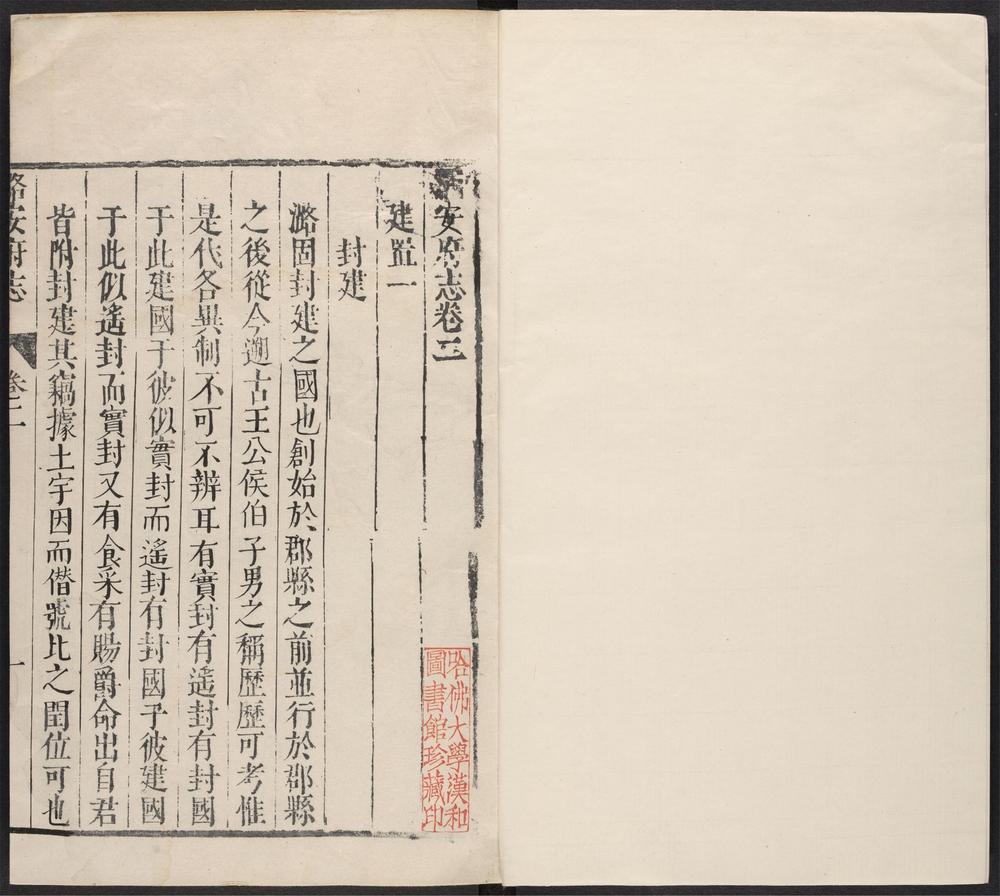 安府志卷三
建置一
封建
潞固封建之國也創始於郡縣之前並行於郡縣
之後從今遡古王公侯伯子男之稱歷歷可考惟
是代各異制不可不辨耳有實封有遙封有封國
于此建國于彼似實封而遙封有封國于彼建國
于此似遙封而實封又有食采有賜爵命出自君
皆附封建其竊據土宇因而僭號比之閏位可也
潞安府志 卷三 一
哈佛大學漢和
圖書館珍藏印